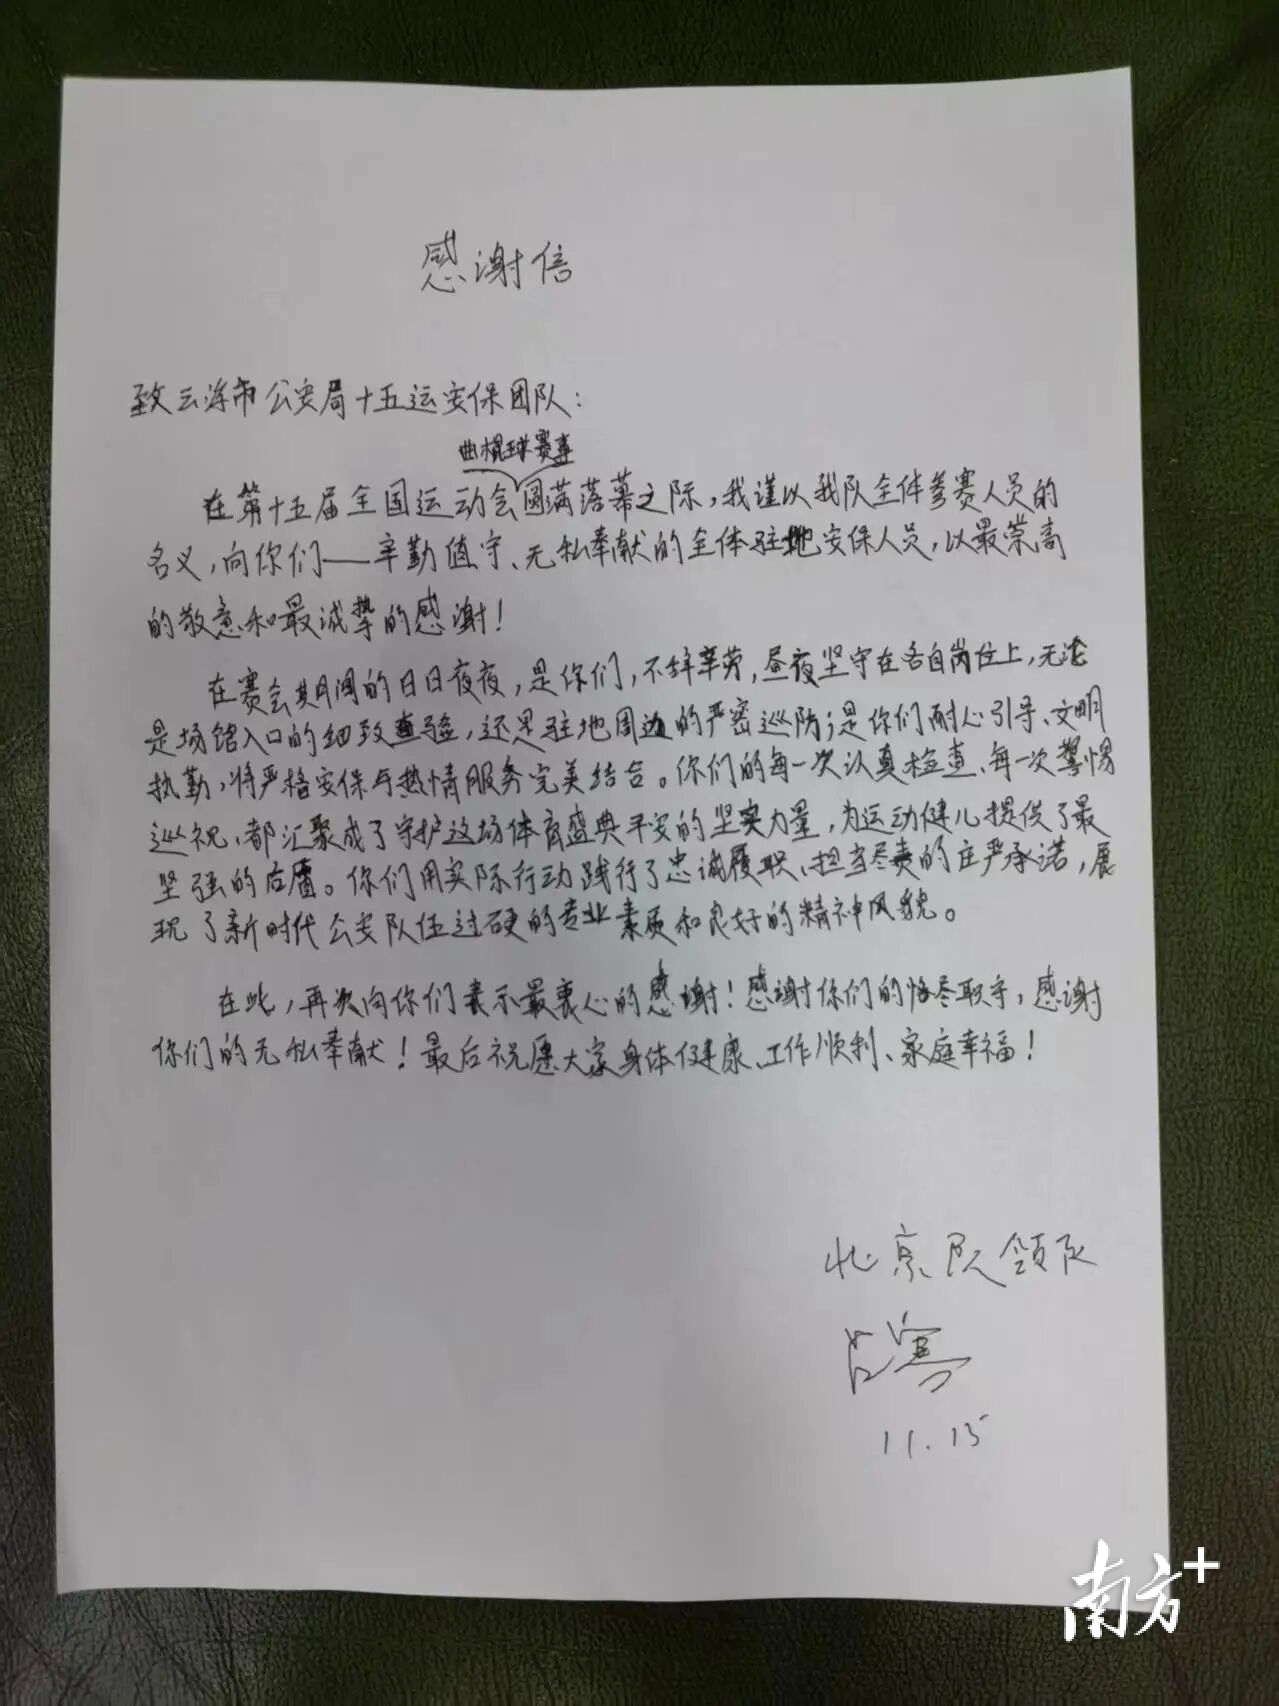 感谢信
致云浮市公安局十五运安保团队：
曲棍球赛事
在第十五届全国运动会圆满落幕之际，我谨以我队全体参赛人员的
名义，向你们——辛勤值守、无私奉献的全体驻地安保人员，以最崇高
的敬意和最诚挚的感谢！
在赛会期间的日日夜夜，是你们，不辞辛劳，昼夜坚守在各自岗位上，无论
是场馆入口的细致查验，还是驻地周边的严密巡防；是你们耐心引导、文明
执勤，将严格安保与热情服务完美结合。你们的每一次认真检查、每一次警惕
巡视，都汇聚成了守护这场体育盛典平安的坚实力量，为运动健儿提供了最
坚强的后盾。你们用实际行动践行了忠诚履职、担当尽责的庄严承诺，展
现了新时代公安队伍过硬的专业素质和良好的精神风貌。
在此，再次向你们表示最衷心的感谢！感谢你们的恪尽职守，感谢
你们的无私奉献！最后祝愿大家身体健康、工作顺利、家庭幸福！
北京队领队
11.15
南方+